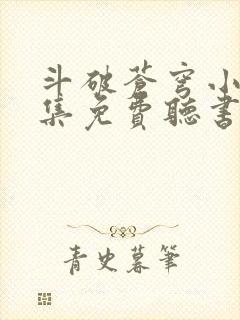 斗破苍穹小
集免費聽書
青史暮筆